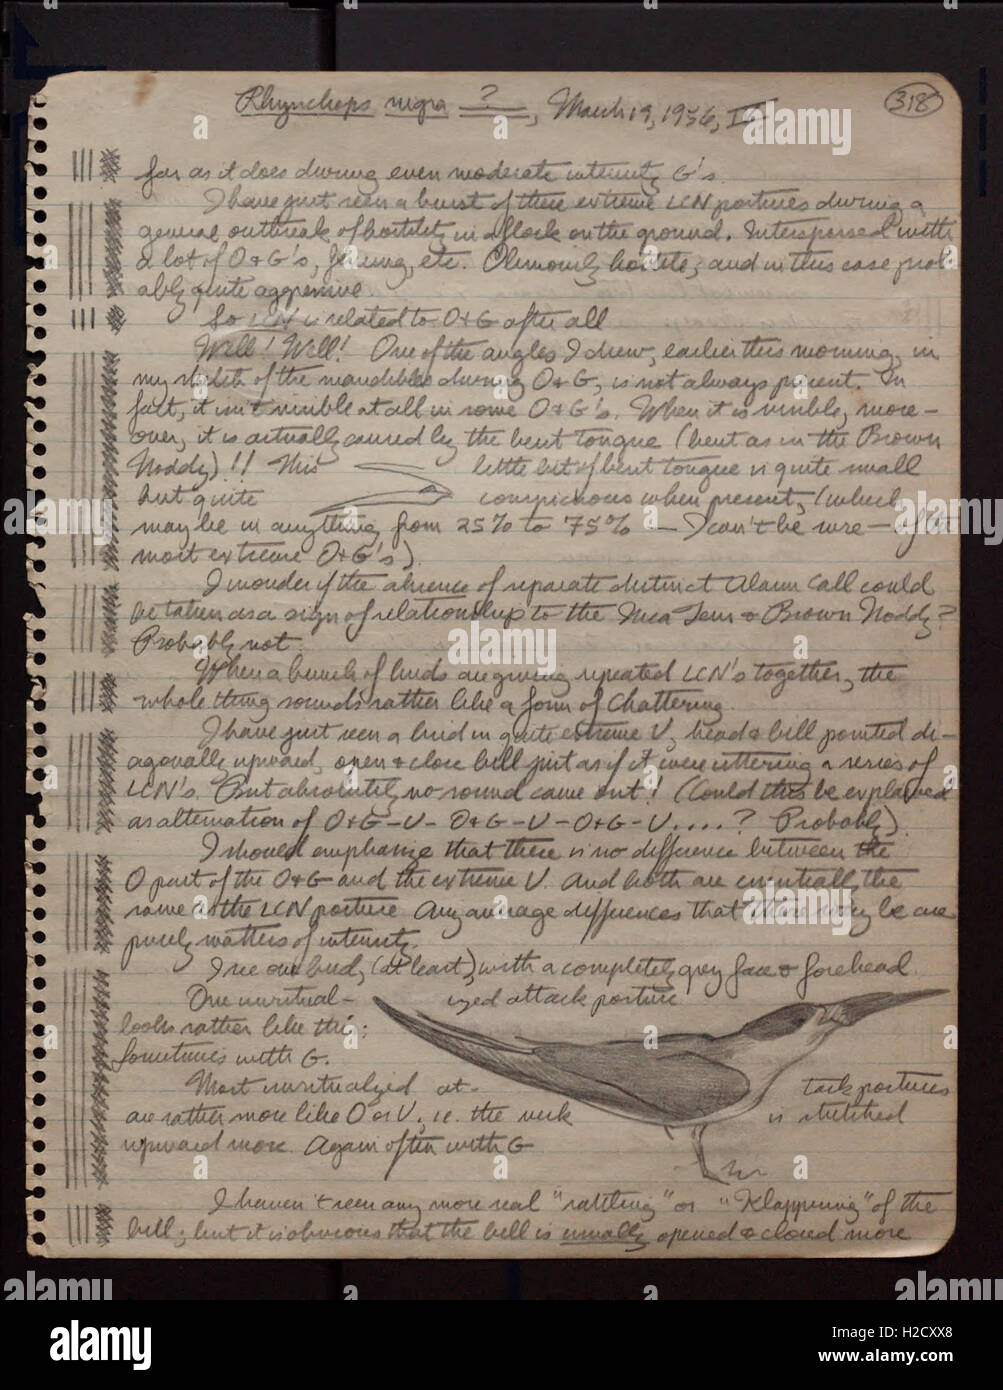 Rhynchops nigra ?, March 19, 1956, IV
318
far as it does during even moderate intensity G's.
I have just seen a burst of these extreme LCN postures during a
general outbreak of hostility in a flock on the ground. Interspersed with
a lot of O+G's, etc. Obviously hostile; and in this case prob-
ably quite aggressive.
So LCN is related to O+G after all
Well! Well! One of the angles I drew, earlier this morning, in
my sketch of the mandibles during O+G, is not always present. In
fact, it isn't visible at all in some O+G's. When it is visible, more-
over, it is actually caused by the bent tongue (bent as in the Brown
Noddy)!! This little bit of bent tongue is quite small
but quite conspicuous when present, (which
may be in anything from 25% to 75% — I can't be sure — of the
most extreme O+G's).
I wonder if the absence of separate distinct Alarm Call could
be taken as a sign of relationship to the Inca Tern & Brown Noddy?
Probably not.
When a bunch of birds are giving repeated LCN's together, the
whole thing sounds rather like a form of Chattering.
I have just seen a bird in quite extreme V, head & bill pointed di-
agonally upward, open & close bill just as if it were uttering a series of
LCN's. But absolutely no sound came out! (Could this be explained
as alternation of O+G-V-O+G-V-O+G-V....? Probably).
I should emphasize that there is no difference between the
O part of the O+G and the extreme V. And both are essentially the
same as the LCN posture. Any average differences that there may be are
purely matters of intensity.
I see one bird, (at least), with a completely grey face & forehead.
One unritual- ized attack posture
looks rather like this:
Sometimes with G.
Most unritualized at- tack postures
are rather more like O or V, i.e. the neck is stretched
upward more. Again often with G
I haven't seen any more real "rattling" or "Klappering" of the
bill; but it is obvious that the bill is usually opened & closed more
alamy
a
Image ID: H2CXX8
www.alamy.com